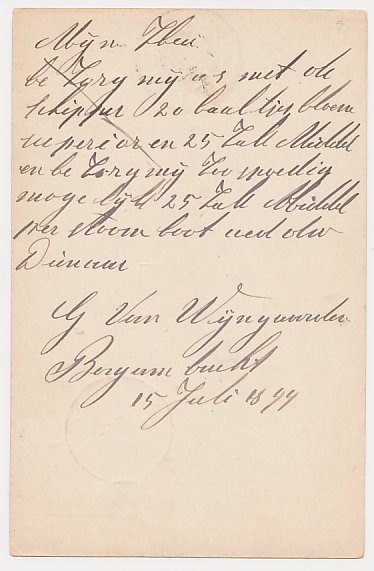 Mijn Heer
be Zorg mij as met de
schipper 20 baaltjes bloem
superior en 25 Zak Middel
en be Zorg mij Zoo spoedig
mogelijk 25 Zak Middel
per stoom boot ued dw
Dienaar
G Van Wijngaarden
Bergambacht
15 Juli 1899